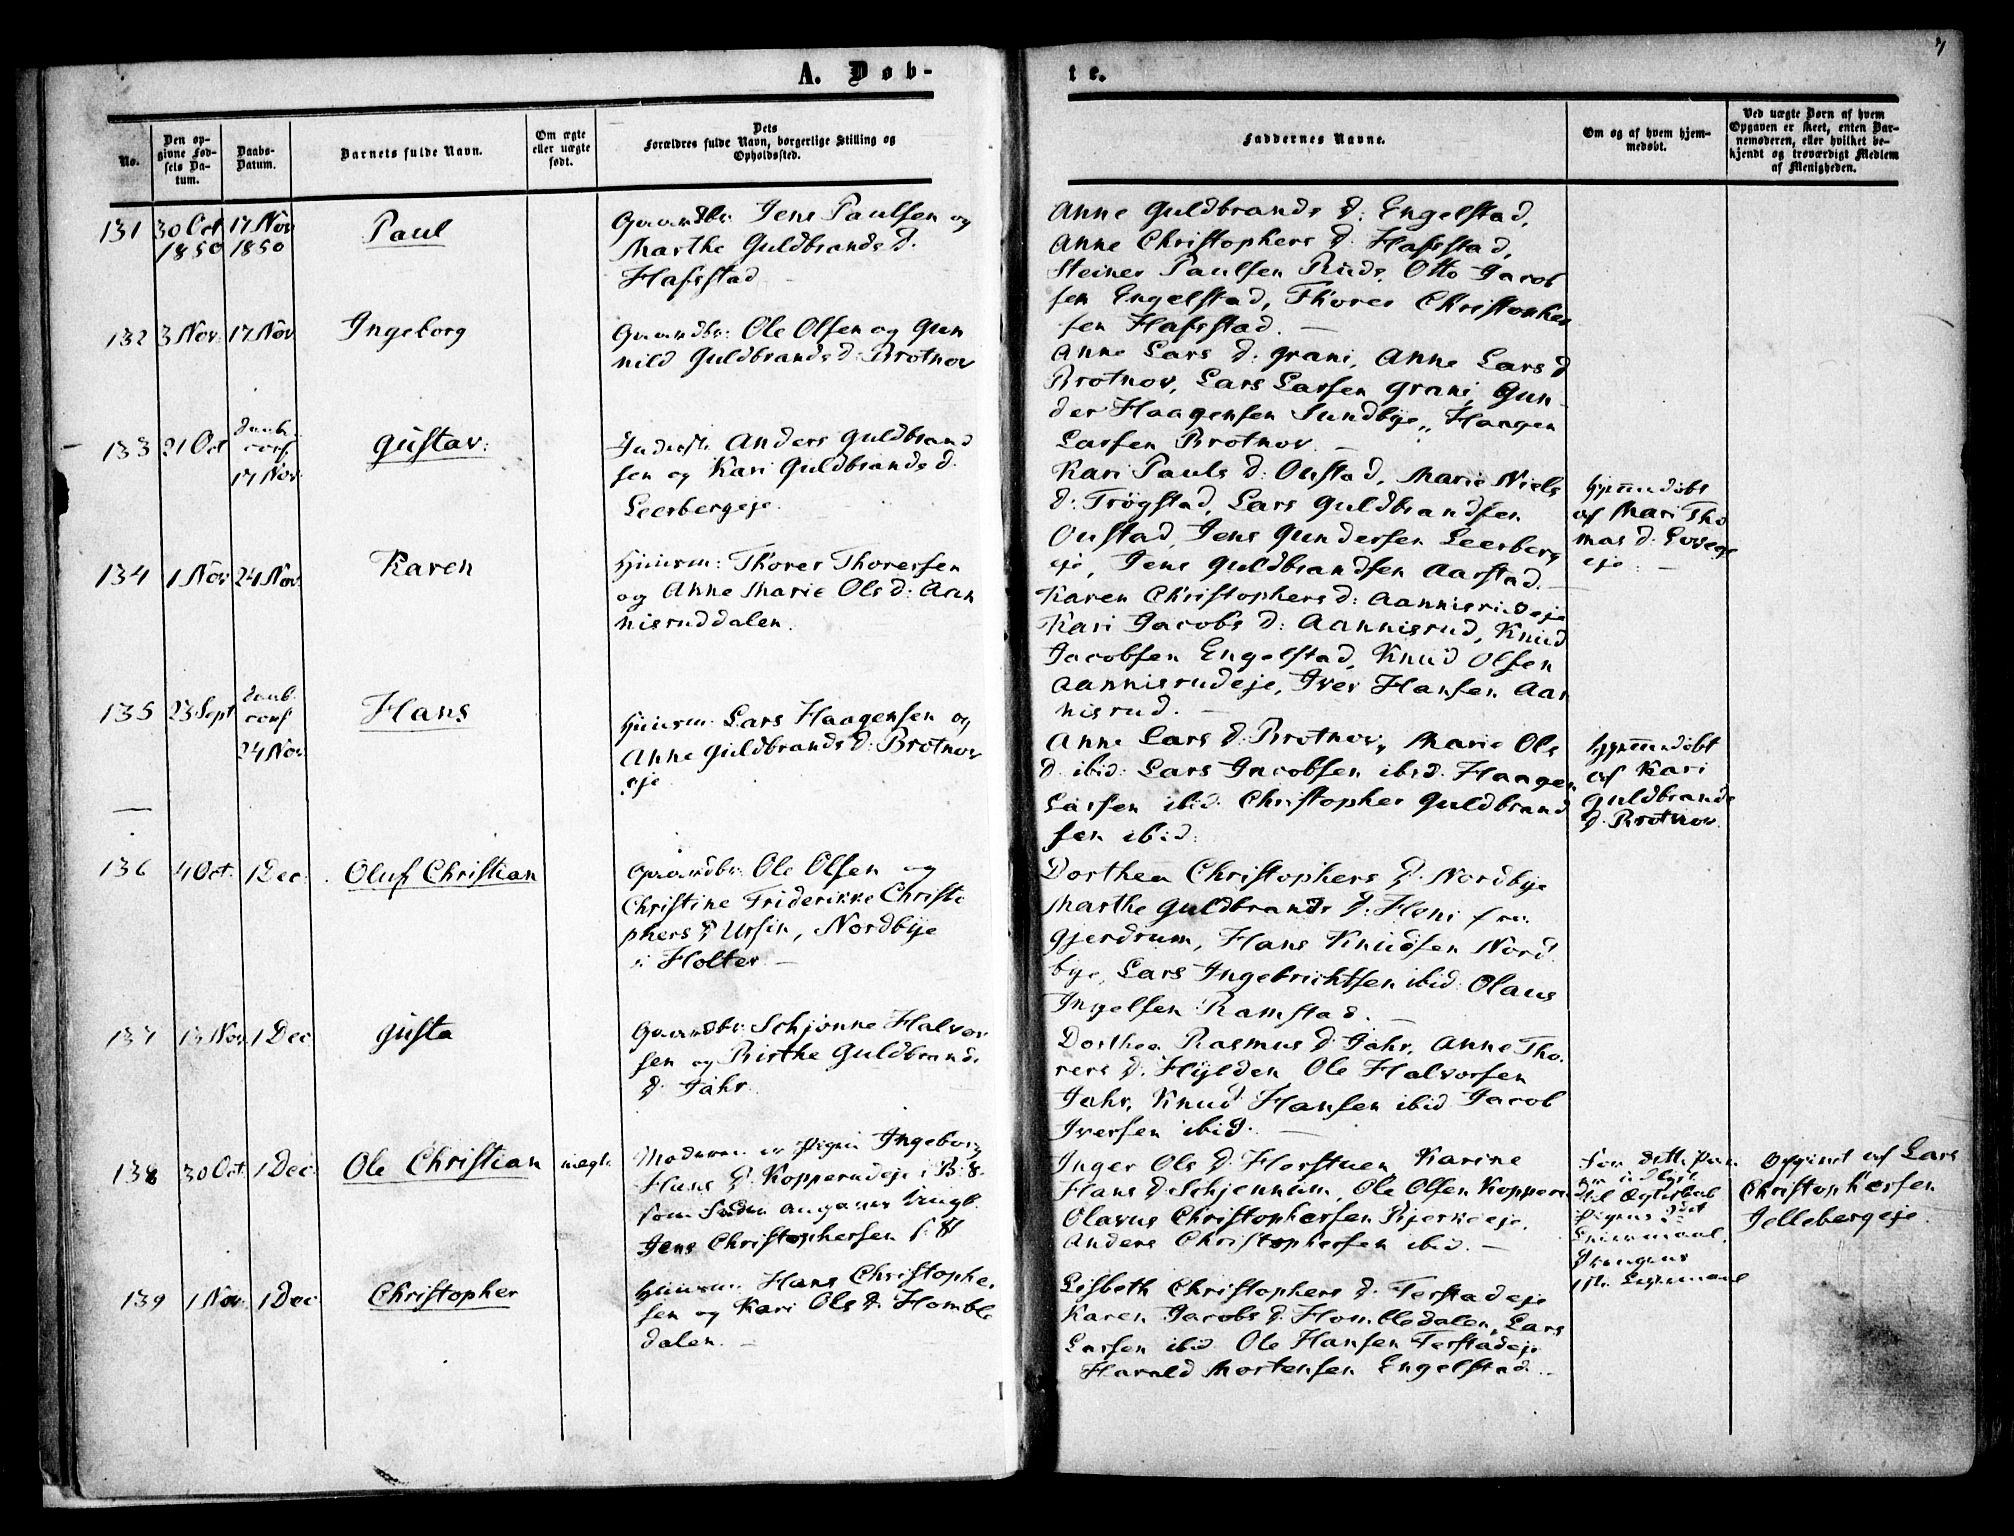 7
A. Døb-
te.
No.
Den op-
givne Fød-
sels Da-
tum.
Daabs-
Datum.
Barnets fulde Navn.
Om ægte
eller uægte
født.
Dets
Forældres fulde Navn, borgerlige Stilling og
Opholdssted.
Faddernes Navne.
Om og af hvem hjem-
medøbt.
Ved uægte Børn af hvem
Opgaven er skeet, enten Bar-
nemoderen, eller hvilket be-
kjendt og troværdigt Medlem
af Menigheden.
131
30 Oct
1850
17 Nov
1850
Paul
Gaardbr: Jens Paulsen og
Marthe Guldbrands d.
Hafsstad
Anne Guldbrands d: Engelstad,
Anne Christophers d. Hafsstad,
Steiner Paulsen Ruds, Otto Jacob
sen Engelstad, Thorer Christopher
sen Hafsstad.
132
3 Nov
17 Nov
Ingeborg
Gaardbr: Ole Olsen og Gun
nild Guldbrands d: Brotnov
Anne Lars d: Grani, Anne Lars d
Brotnov, Lars Larsen Grani, Gun
der Haagensen Sundbye, Haagen
Larsen Brotnov
133
21 Oct
Daab.
conf
17 Nov
Gustav:
Inderst: Anders Guldbrand
sen og Kari Guldbrands d.
Leerbergeje.
Kari Pauls d: Oustad, Marie Niels
d: Trøgstad, Lars Guldbrandsen
Oustad, Jens Gundersen Leerberg
eje, Jens Guldbrandsen Aarstad.
Hjemmedøbt
af Mari Tho
mas d.
eje
134
1 Nov
24 Nov
Karen
Huusm: Thorer Thorersen
og Anne Marie Ols d: Aan
nisruddalen.
Karen Christophers d: Aannisrudeje
Kari Jacobs d: Aannisrud, Knud
Jacobsen Engelstad, Knud Olsen
Aannisrudeje, Iver Hansen Aan
nisrud.
135
23 Sept
Daab.
conf
24 Nov
Hans
Huusm: Lars Haagensen og
Anne Guldbrands d: Brotnov
eje
Anne Lars d: Brotnov, Marie Ols
d ibid: Lars Jacobsen ibid. Haagen
Larsen ibid Christopher Guldbrand
sen ibid.
Hjemmedøbt
af Kari
Guldbrands
d. Brotnov
136
4 Oct.
1 Dec.
Oluf Christian
Gaardbr: Ole Olsen og
Christine Friderikke Christo
phers d Ursin, Nordbye
i Holter
Dorthea Christophers d: Nordbye
Marthe Guldbrands d: Høni fra
Gjerdrum, Hans Knudsen Nord
bye, Lars Ingebrichtsen ibid: Olaus
Ingelsen Ramstad.
137
13 Nov
1 Dec
Gusta
Gaardbr: Schjønne Halvor
sen og Birthe Guldbrands
d. Jahr
Dorthea Rasmus d Jahr, Anne Tho
rers d: Hylden Ole Halvorsen
Jahr, Knud Hansen ibid Jacob
Iversen ibid:
138
30 Oct.
1 Dec.
Ole Christian
uægte
Moderen er Pigen Ingeborg
Hans d. Kopperudeje i
som Fader angaves Ungk.
Jens Christophersen
Inger Ols d Horstuen Karine
Hans d Schjennum, Ole Olsen Kopperu
Olavus Christophersen Bjerkeeje,
Anders Christophersen ibid.
For dette Par
er udlyst
til Ægteskab
Pigens 2det
Leiermaal,
Drengens
1ste Leiermaal
Opgivet af Lars
Christophersen
Jellebergeje
139
1 Nov.
1 Dec
Christopher
Huusm: Hans Christopher
sen og Kari Ols d: Homble
dalen.
Lisbeth Christophers d: Terstadeje
Karen Jacobs d: Hombledalen, Lars
Larsen ibid Ole Hansen Terstadeje
Harald Mortensen Engelstad